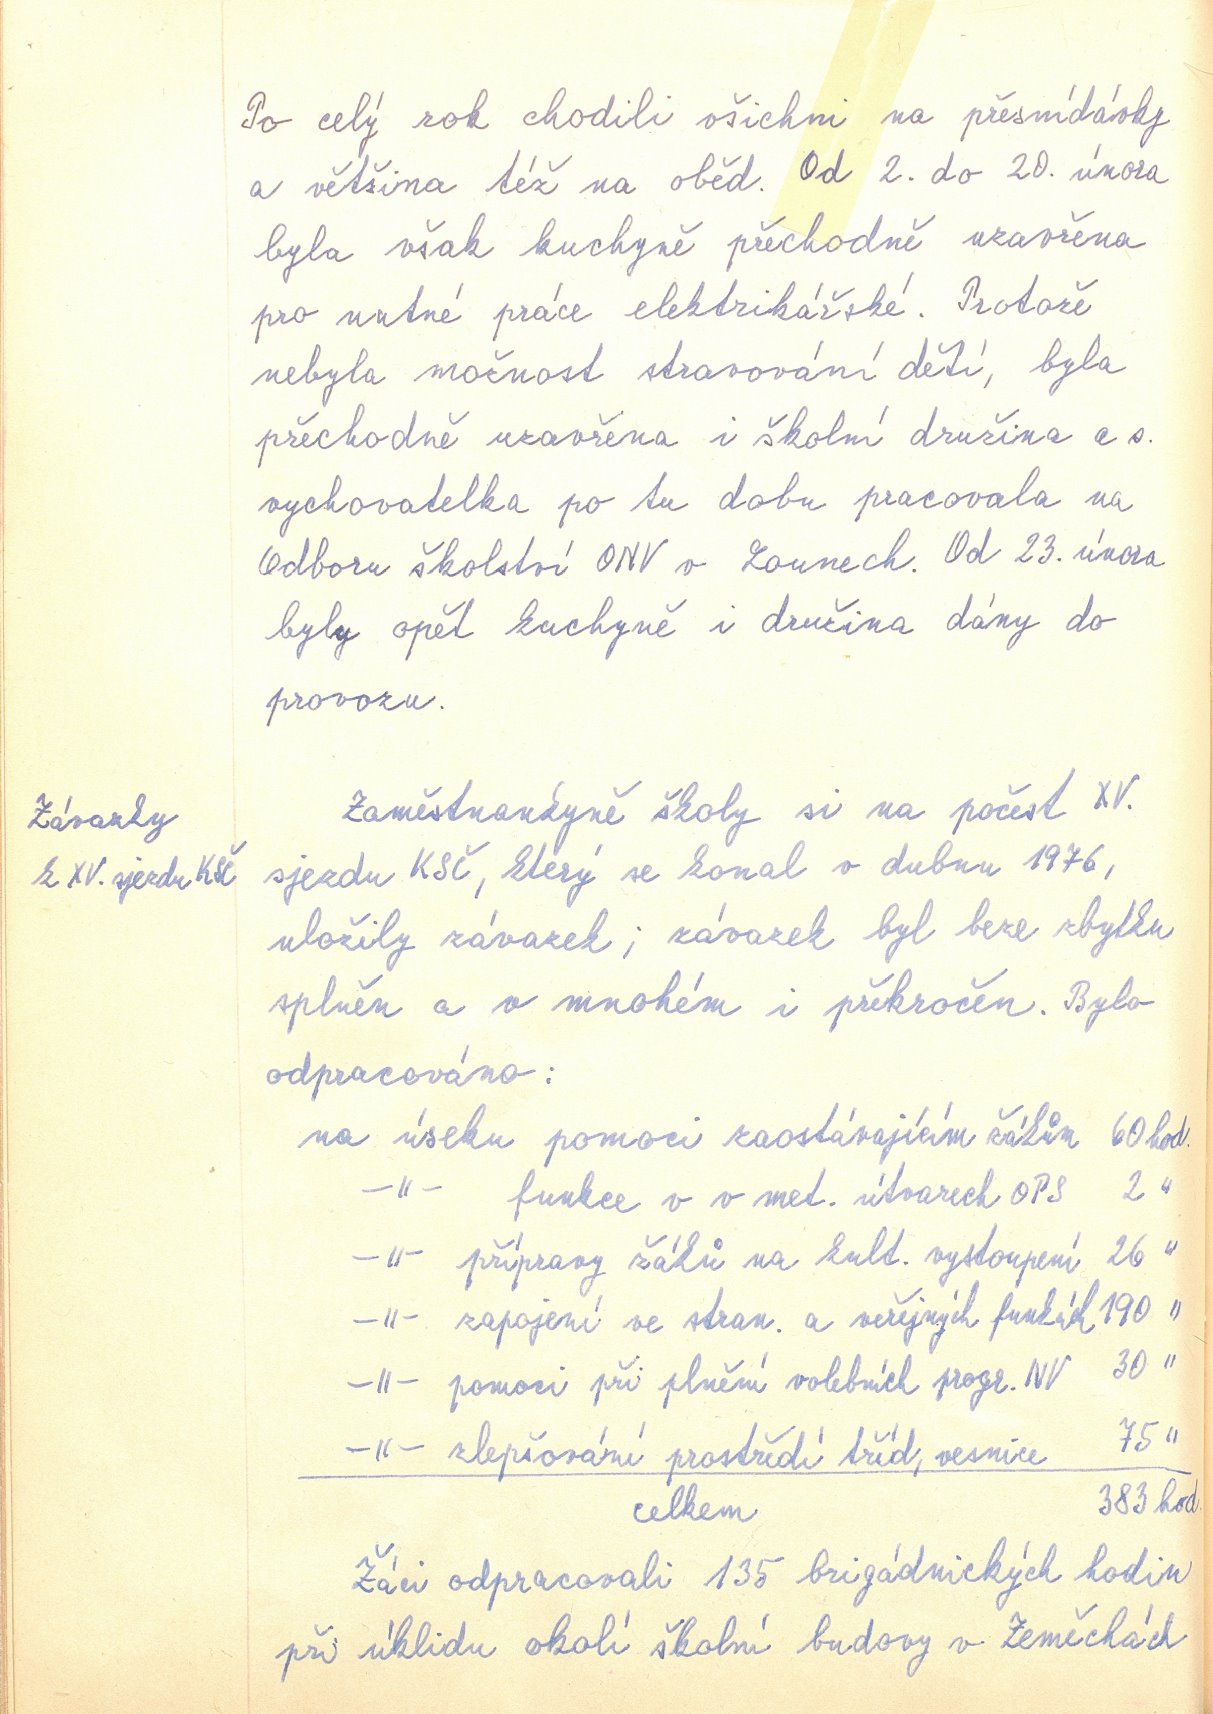 Po celý rok chodili všichni na přesnídávky
a většina též na oběd. Od 2. do 20. února
byla však kuchyně přechodně uzavřena
pro nutné práce elektrikářské. Protože
nebyla možnost stravování dětí, byla
přechodně uzavřena i školní družina a s.
vychovatelka po tu dobu pracovala na
Odboru školství ONV v Lounech. Od 23. února
byly opět kuchyně i družina dány do
provozu.
Závazky
k XV. sjezdu KSČ
Zaměstnankyně školy si na počest XV.
sjezdu KSČ, který se konal v dubnu 1976,
uložily závazek; závazek byl beze zbytku
splněn a v mnohém i překročen. Bylo
odpracováno:
na úseku pomoci zaostávajícím žákům 60 hod.
—"— funkce v v met. útvarech OPS 2 "
—"— přípravy žáků na kult. vystoupení 26 "
—"— zapojení ve stran. a veřejných funkcích 190 "
—"— pomoci při plnění volebních progr. NV 30 "
—"— zlepšování prostředí tříd, vesnice 75 "
celkem 383 hod.
Žáci odpracovali 135 brigádnických hodin
při úklidu okolí školní budovy v Zeměchách